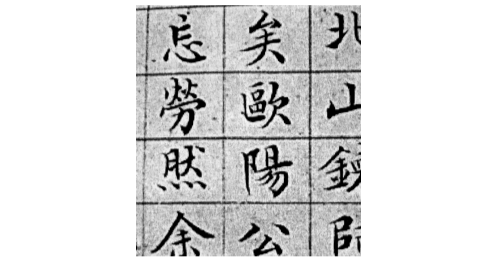 北山鏡師
矣歐陽公
忘勞然余